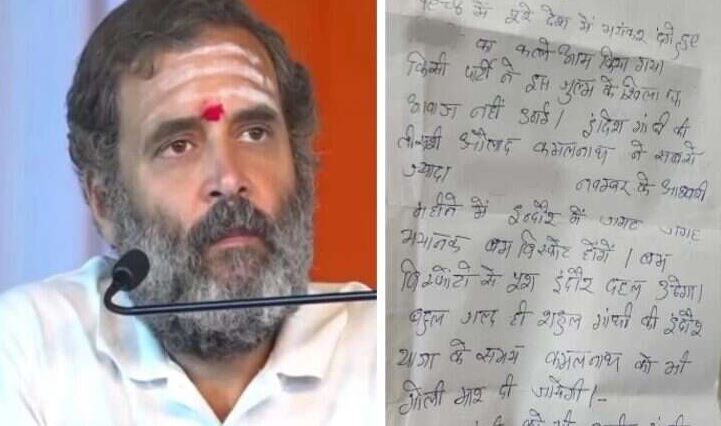 में पूरे देश में भयंकर दंगे हुए
का कत्ले आम किया गया।
किसी पार्टी ने इस जुल्म के खिलाफ
आवाज नहीं उठाई। इंदिरा गांधी की
औलाद कमलनाथ ने सबसे
ज्यादा नवम्बर के आखरी
महीने में इन्दौर में जगह जगह
भयानक बम विस्फोट होंगे। बम
विस्फोटो से पूरा इंदौर दहल उठेगा।
बहुत जल्द ही राहुल गांधी की इंदौर
यात्रा के समय कमलनाथ को भी
गोली मार दी जायेगी।-